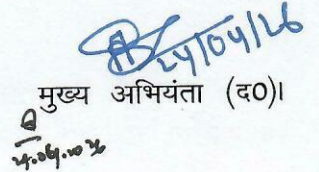 24/04/26
मुख्य अभियंता (द०)।